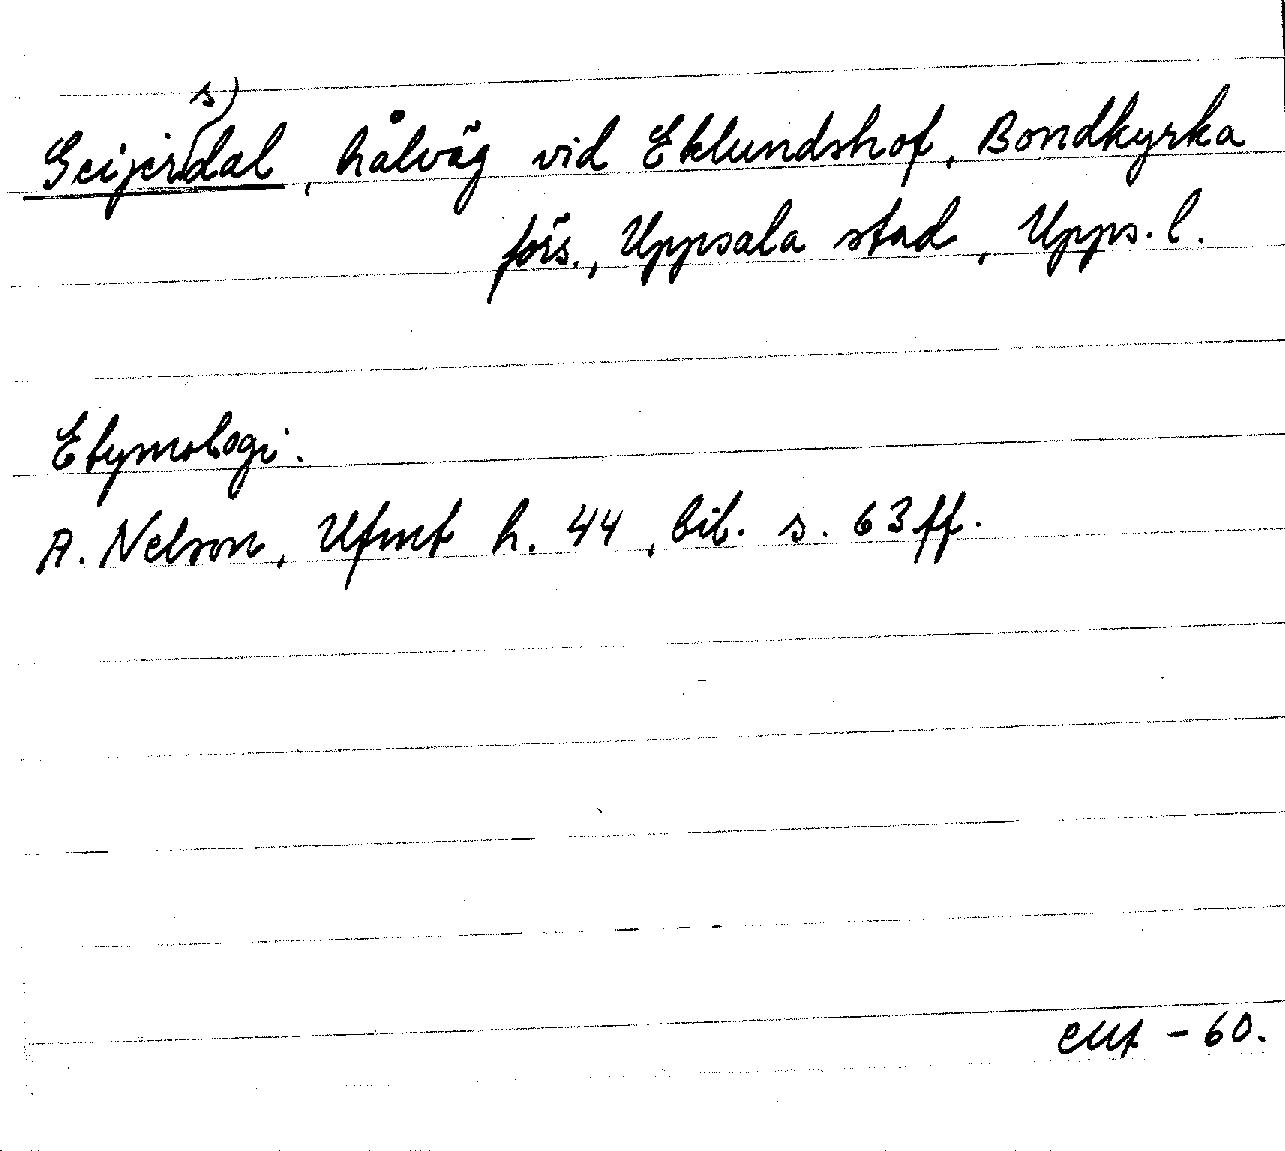 s)
Geijersdal, hålväg vid Eklundshof, Bondkyrka
förs., Uppsala stad, Upps. l.
Etymologi.
A. Nelson, Ufmt h. 44, bil. s. 63 ff.
- 60.